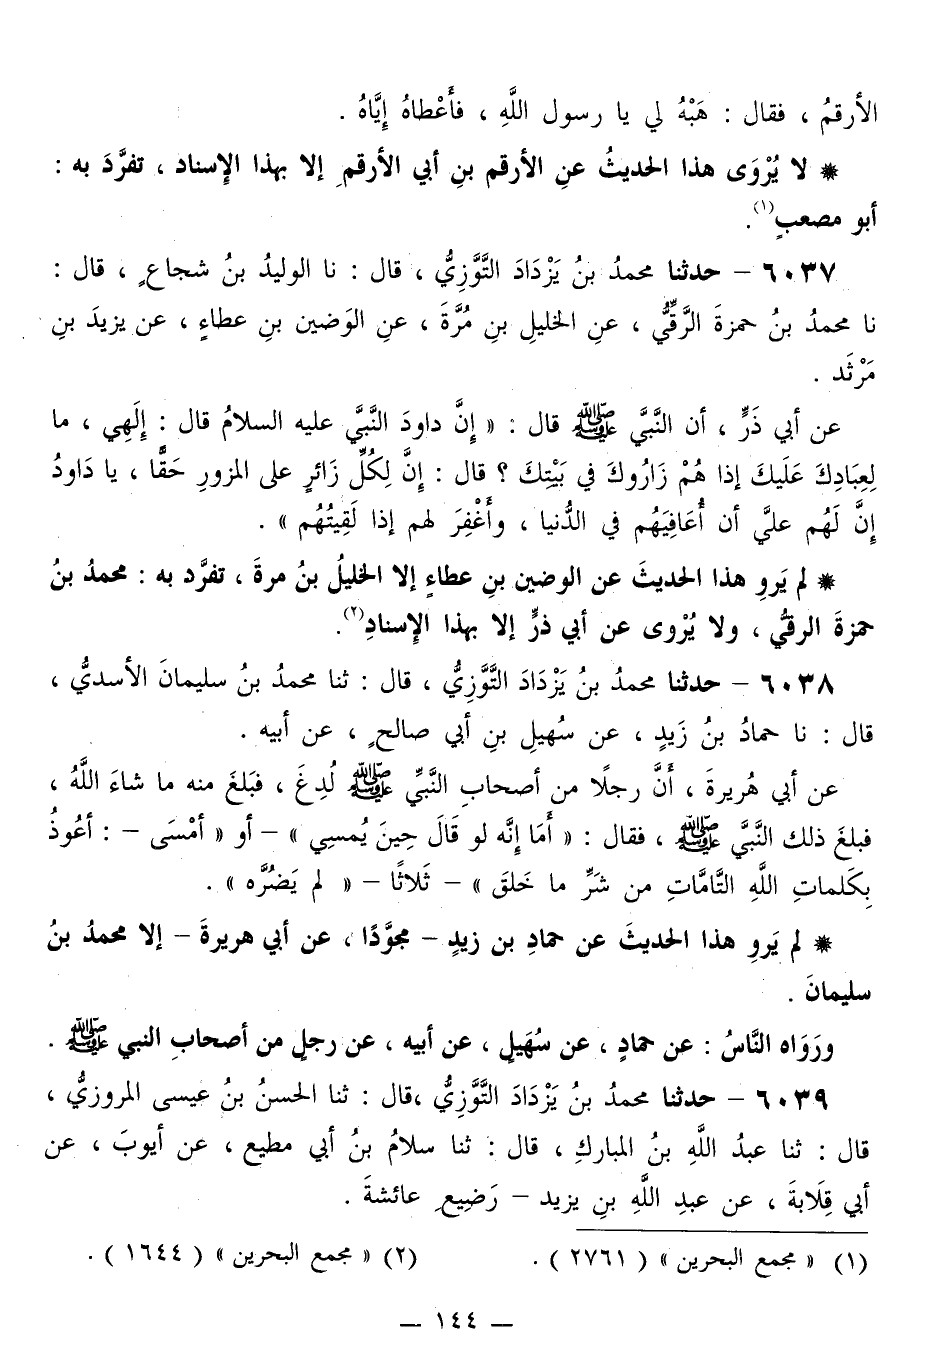 الأرقمُ ، فقال : هَبْهُ لي يا رسول اللَّهِ ، فأَعْطاهُ إِيَّاهُ .
* لا يُرْوَى هذا الحديثُ عنِ الأرقم بنِ أبي الأرقمِ إلا بهذا الإِسناد ، تفرَّدَ به :
أبو مصعبٍ(١).
٦٠٣٧ – حدثنا محمدُ بنُ يَزْدَادَ التَّوَّزِيُّ ، قال : نا الوليدُ بنُ شجاعٍ ، قال :
نا محمدُ بنُ حمزةَ الرَّقِّيُّ ، عنِ الخليلِ بنِ مُرَّةَ ، عنِ الوَضين بنِ عطاءٍ ، عن يزيدَ بنِ
مَرْثَد .
عن أبي ذَرٍّ ، أن النَّبيَّ ﷺ قال : « إنَّ داودَ النَّبيَّ عليه السلامُ قال : إلَهِي ، ما
لِعِبَادِكَ عَلَيكَ إذا هُمْ زَارُوكَ في بَيْتِكَ ؟ قال : إنَّ لِكُلِّ زَائرٍ على المزورِ حَقًّا ، يا دَاودُ
إنَّ لَهُم عليَّ أن أُعَافِيَهُم في الدُّنيا ، وأَغْفِرَ لهم إذا لَقِيتُهُم » .
* لم يَروِ هذا الحديثَ عن الوضين بنِ عطاءٍ إلا الخليلُ بنُ مرةَ ، تفرَّد به : محمدُ بنُ
حمزةَ الرقيُّ ، ولا يُرْوى عن أبي ذرٍّ إلا بهذا الإسنادِ(٢).
٦٠٣٨ – حدثنا محمدُ بنُ يَزْدَادَ التَّوَّزِيُّ ، قال : ثنا محمدُ بنُ سليمانَ الأسديُّ ،
قال : نا حمادُ بنُ زَيدٍ ، عن سُهيلِ بنِ أبي صالحٍ ، عن أبيه .
عن أبي هُريرةَ ، أَنَّ رجلًا من أصحابِ النَّبيِّ ﷺ لُدِغَ ، فبَلغَ منه ما شاءَ اللَّهُ ،
فبلغَ ذلك النَّبيَّ ﷺ ، فقال : « أَمَا إنَّه لو قَالَ حِينَ يُمسِي » – أو « أمْسَى – : أعُوذُ
بِكَلماتِ اللَّهِ التَّامَّاتِ من شَرِّ ما خَلقَ » – ثَلاثًا – « لم يَضُرَّه » .
* لم يَروِ هذا الحديثَ عن حمادِ بن زيدٍ – مجوَّدًا ، عن أبي هريرةَ – إلا محمدُ بنُ
سليمانَ .
ورَوَاه النَّاسُ : عن حمادٍ ، عن سُهَيلٍ ، عن أبيه ، عن رجلٍ من أصحابِ النبي ﷺ .
٦٠٣٩ – حدثنا محمدُ بنُ يَزْدَادَ التَّوَّزِيُّ ،قال : ثنا الحسنُ بنُ عيسى المروزيُّ ،
قال : ثنا عبدُ اللَّهِ بنُ المباركِ ، قال : ثنا سلامُ بنُ أبي مطيع ، عن أيوبَ ، عن
أبي قِلَابةَ ، عن عبدِ اللَّهِ بنِ يزيد – رَضِيعِ عائشةَ .
(١) « مجمع البحرين » ( ٢٧٦١ ) .
(٢) « مجمع البحرين » ( ١٦٤٤ ) .
– ١٤٤ –